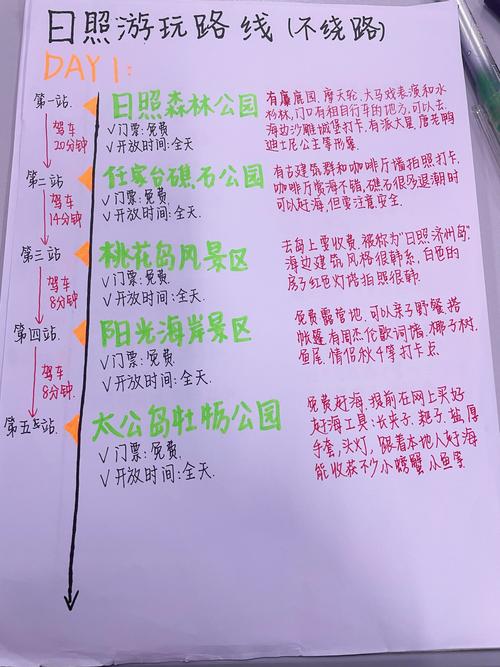 日照游玩路线(不绕路)
DAY 1:
第一站
日照森林公园
√门票:免费
√开放时间:全天
有麋鹿园、摩天轮、大马戏表演和水
杉林,门口有租自行车的地方,可以去
海边沙雕城堡打卡,有派大星、唐老鸭
迪士尼公主等形象
驾车
20分钟
第二站
任家台礁石公园
√门票:免费
√开放时间:全天.
有古建筑群和咖啡厅墙拍照打卡,
咖啡厅赏海不错,礁石很多退潮时
可以赶海,但要注意安全.
驾车
14分钟
第三站
桃花岛风景区
√门票:免费
√开放时间:全天
去岛上票收费,被称为"日照·济州岛"
海边建筑,风格很韩系,白色的
房子红色灯塔拍照很韩.
驾车
8分钟
第四站
阳光海岸景区
√门票:免费
√开放时间:全天.
免费露营地,可以亲子野餐搭
帐篷有周杰伦歌词墙,椰子树,
鱼尾,情侣秋千等打卡点
驾车
8分钟.
第五站.
太公岛牡蛎公园
√门票:免费.
√开放时间:全天.
免费赶海,提前在网上买好
赶海工具:长夹子、耙子、盐,厚
手套,头灯,跟着本地人赶海
能收获不少小螃蟹小鱼等